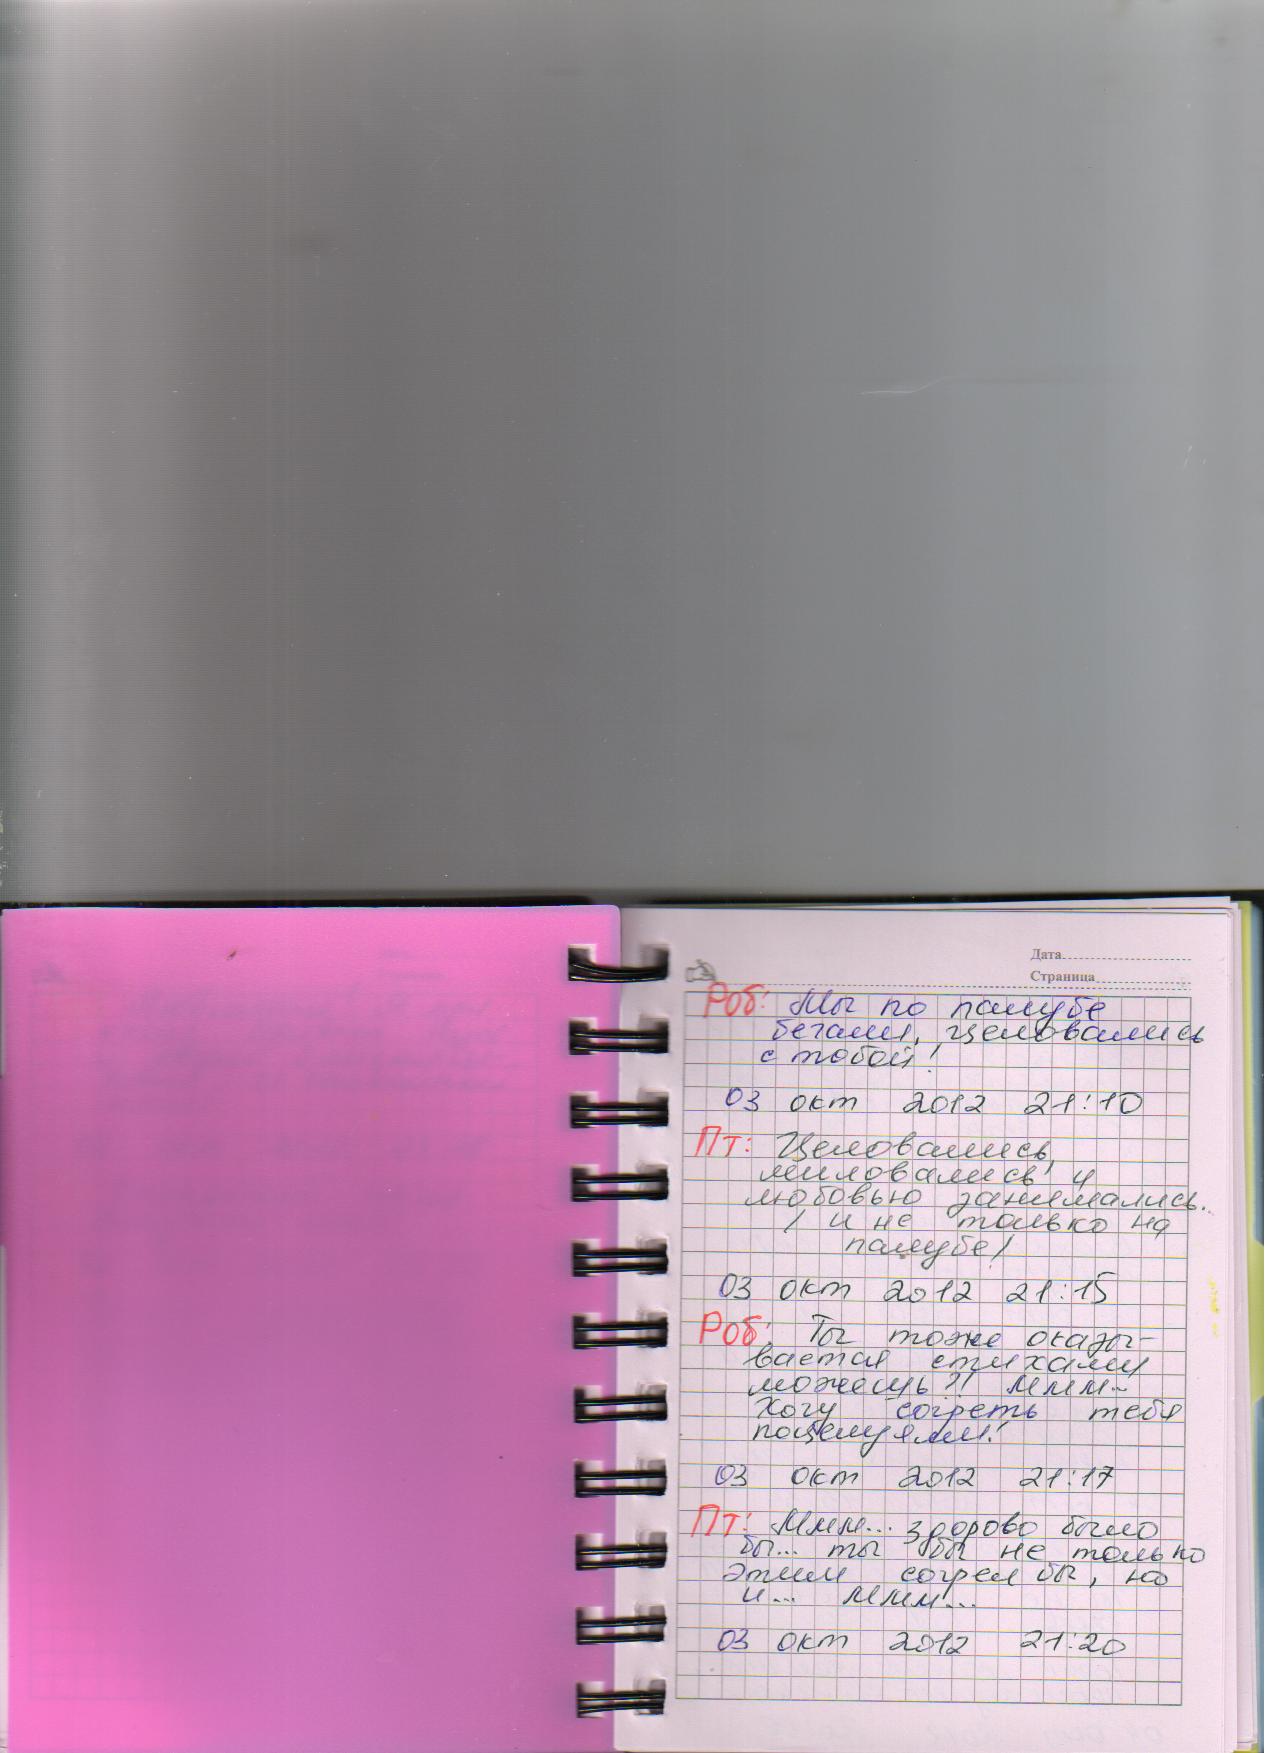 Дата
Страница
Роб: Мы по палубе
бегали, целовались
с тобой!
03 окт 2012 21:10
Пт: Целовались,
миловались и
любовью занимались..
/ и не только на
палубе/
03 окт 2012 21:15
Роб: Ты тоже оказы-
вается стихами
можешь?! Ммм..
Хочу согреть тебя
поцелуями!
03 окт 2012 21:17
Пт: Ммм... здорово было
бы... ты бы не только
этим согрел бы, но
и... ммм...
03 окт 2012 21:20